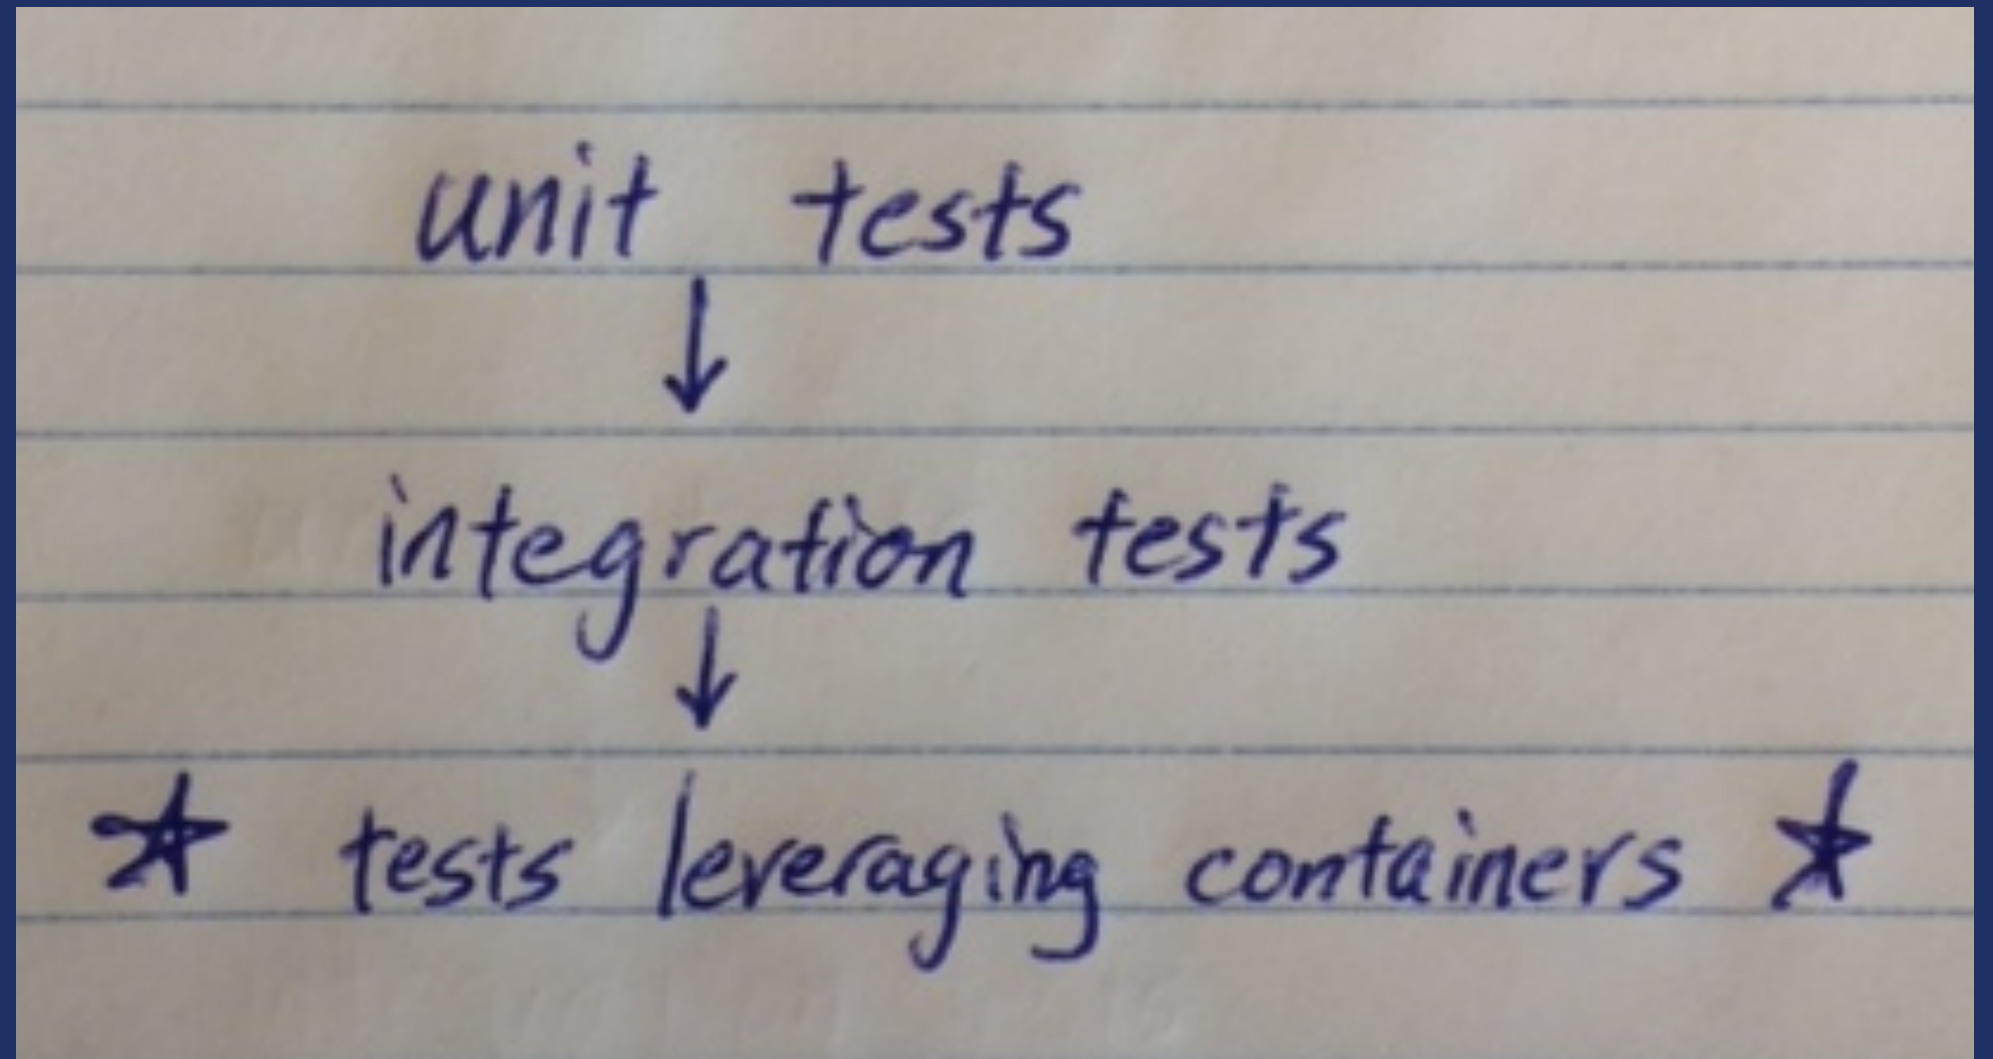 unit tests
↓
integration tests
↓
★ tests leveraging containers ★